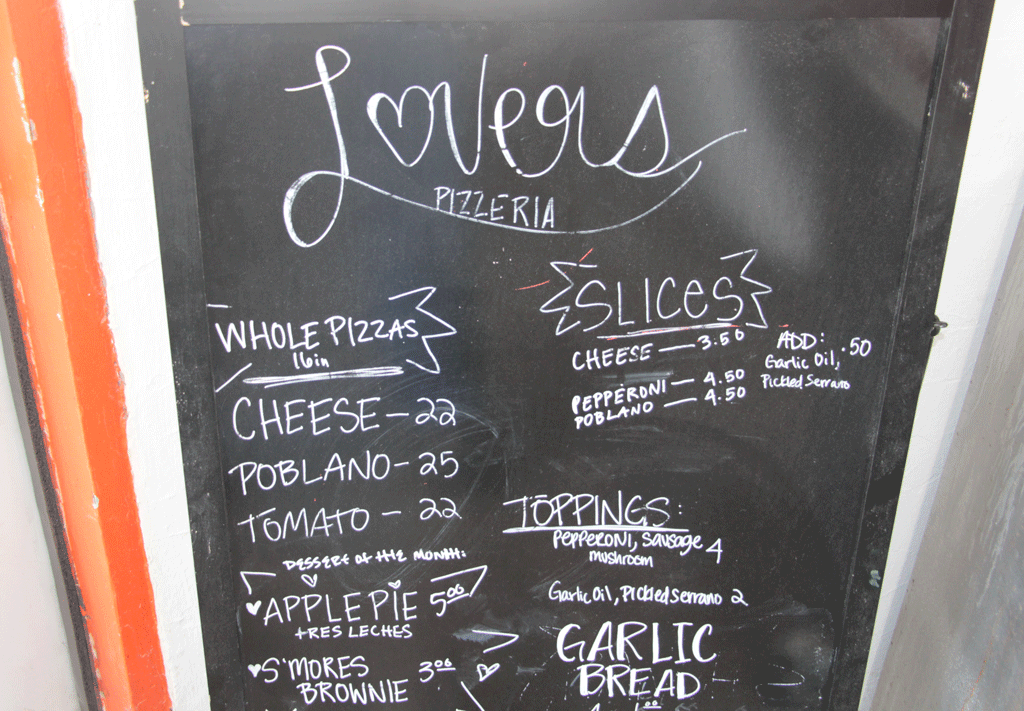 Lovers
PIZZERIA
WHOLE PIZZAS
16in
CHEESE - 22
POBLANO - 25
TOMATO - 22
DESSERT OF THE MONTH:
APPLE PIE 5.00
+RES LECHES
S'MORES 3.00
BROWNIE
SLICES
CHEESE — 3.50
PEPPERONI — 4.50
POBLANO — 4.50
ADD: .50
Garlic Oil,
Pickled Serrano
TOPPINGS:
PEPPERONI, Sausage 4
mushroom
Garlic Oil, Pickled Serrano 2
GARLIC
BREAD